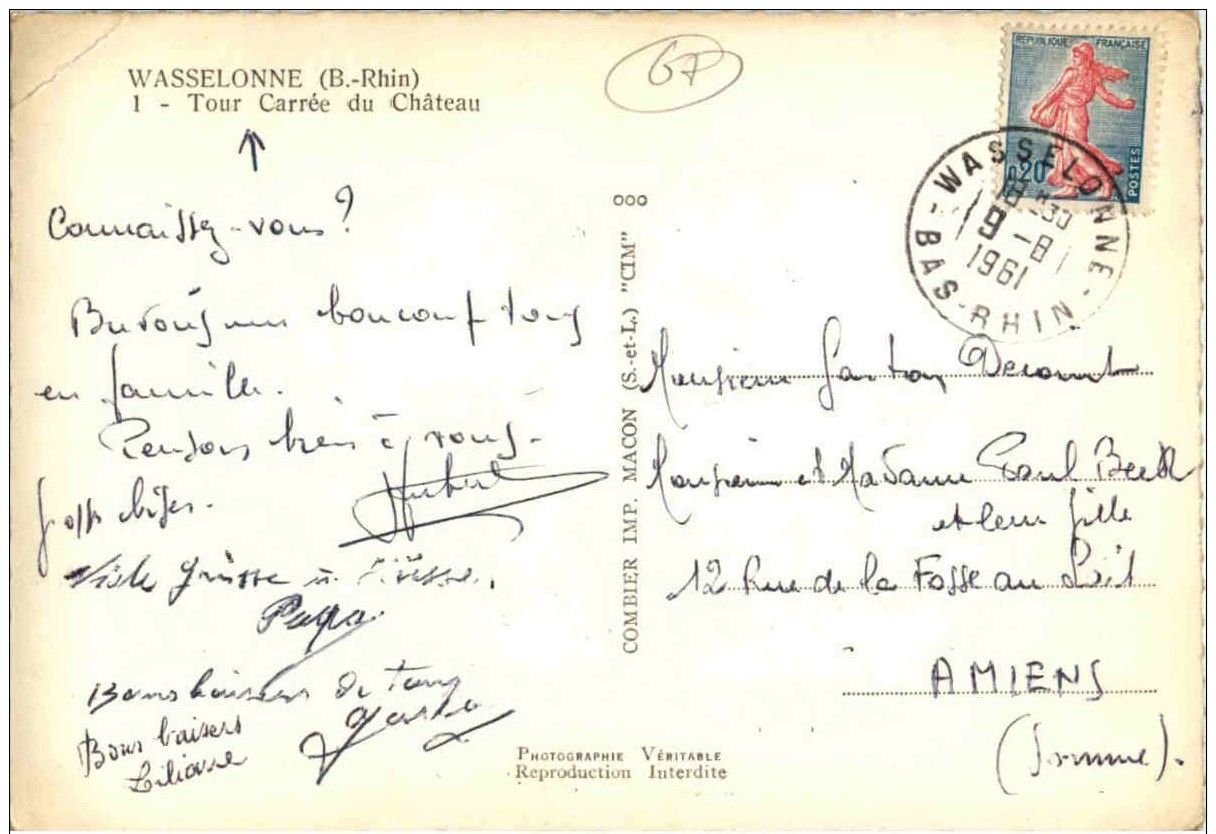 WASSELONNE (B.-Rhin)
1 - Tour Carrée du Château
67
REPUBLIQUE FRANÇAISE
0,20
POSTES
WASSELONNE
BAS-RHIN
18 30
9-8
1961
Connaissez-vous?
Buvons beaucoup tous
en famille.
Pensons bien à vous.
Hubert
Viele Grüsse u. Küsse.
Papa
Bons baisers de tous
Bons baisers
Liliane
COMBIER IMP. MACON (S.-et-L.) "CIM"
Monsieur Gaston
Monsieur et Madame Paul
et leur fille
12 Rue de la Fosse au Lait
AMIENS
(Somme).
PHOTOGRAPHIE VÉRITABLE
Reproduction Interdite